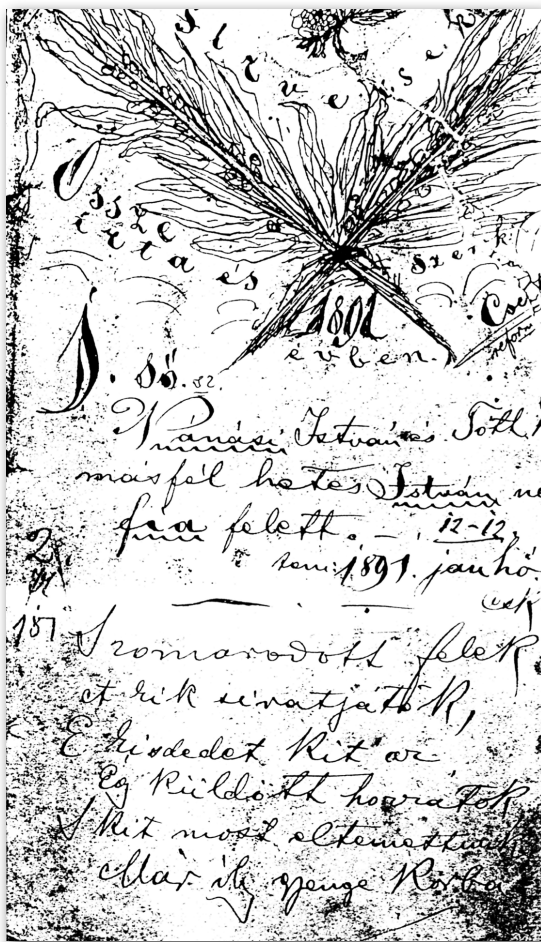 Sirversek
Össze
irta és
szerk
1891
évben
I. ső. 82
Vánási István és Tóth
másfél hetes István
fia felett. 12-12,
tem: 1891. jan hó.
187
Szomorodott felek
A kik siratjátok,
E kisdedet kit az
Ég küldött hozzátok
S kit most eltemettünk
Már ily gyenge korba